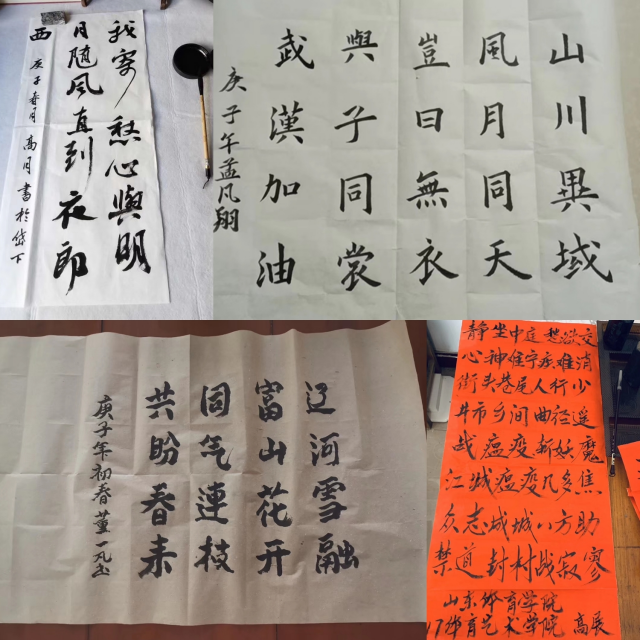 我寄愁心與明
月随风直到夜郎
西
庚子春月 高月書於岱下
山川異域
風月同天
豈曰無衣
與子同裳
武漢加油
庚子年孟凡翔
辽河雪融
富山花开
同气連枝
共盼春来
庚子年初春董一凡书
静坐中庭愁欲交
心神难宁疾难消
街头巷尾人行少
井市乡间曲径遥
战瘟疫斩妖魔
江城瘟疫几多焦
众志成城八方助
禁道封村战寂寥
山东体育学院
17体育艺术学院 高展